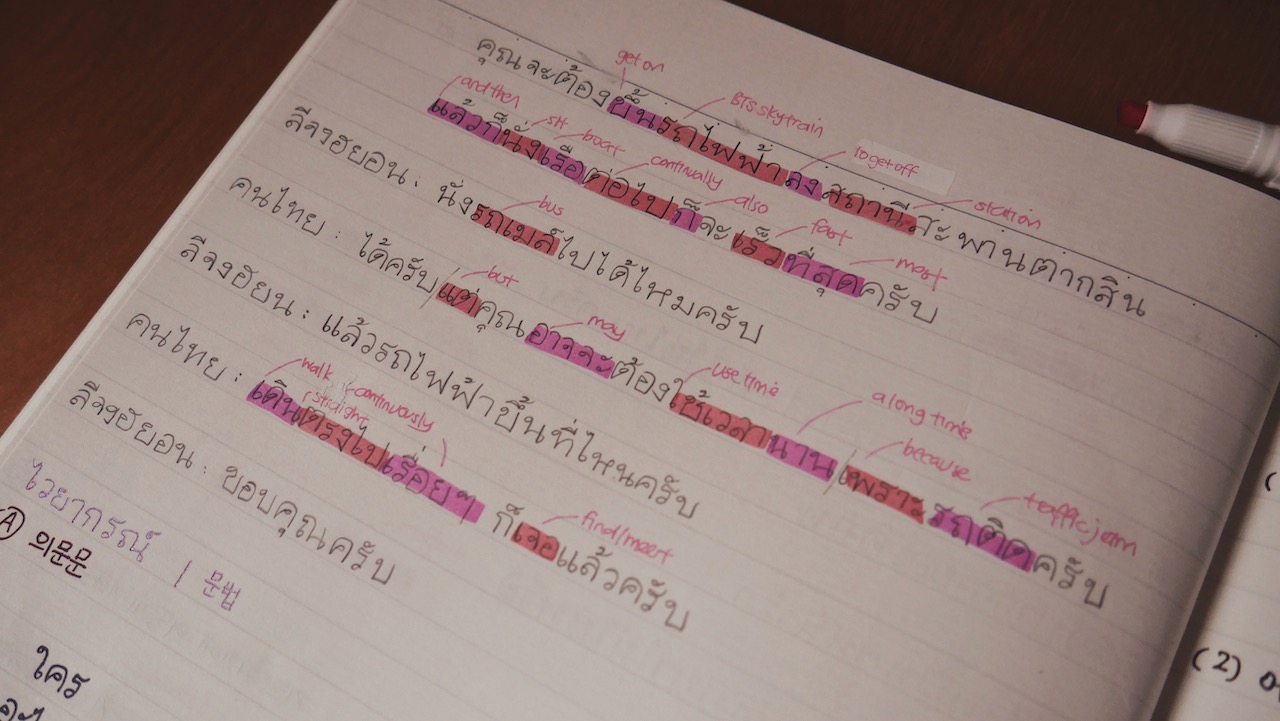 get on BTS skytrain to get off station
คุณจะต้องขึ้นรถไฟฟ้าลงสถานีสะพานตากสิน
and then sit boat continually also fast most
แล้วก็นั่งเรือต่อไปก็จะเร็วที่สุดครับ
bus
ลีจงฮยอน : นั่งรถเมล์ไปได้ไหมครับ
but may use time a long time because traffic jam
คนไทย : ได้ครับ/แต่คุณอาจจะต้องใช้เวลานาน/เพราะรถติดครับ
ลีจงฮยน : แล้วรถไฟฟ้าขึ้นที่ไหนครับ
walk straight continuously find/meet
คนไทย : เดินตรงไปเรื่อยๆ ก็เจอแล้วครับ
ลีจงฮยอน : ขอบคุณครับ
ไวยากรณ์ / 문법
Ⓐ 의문문
ใคร
(2)